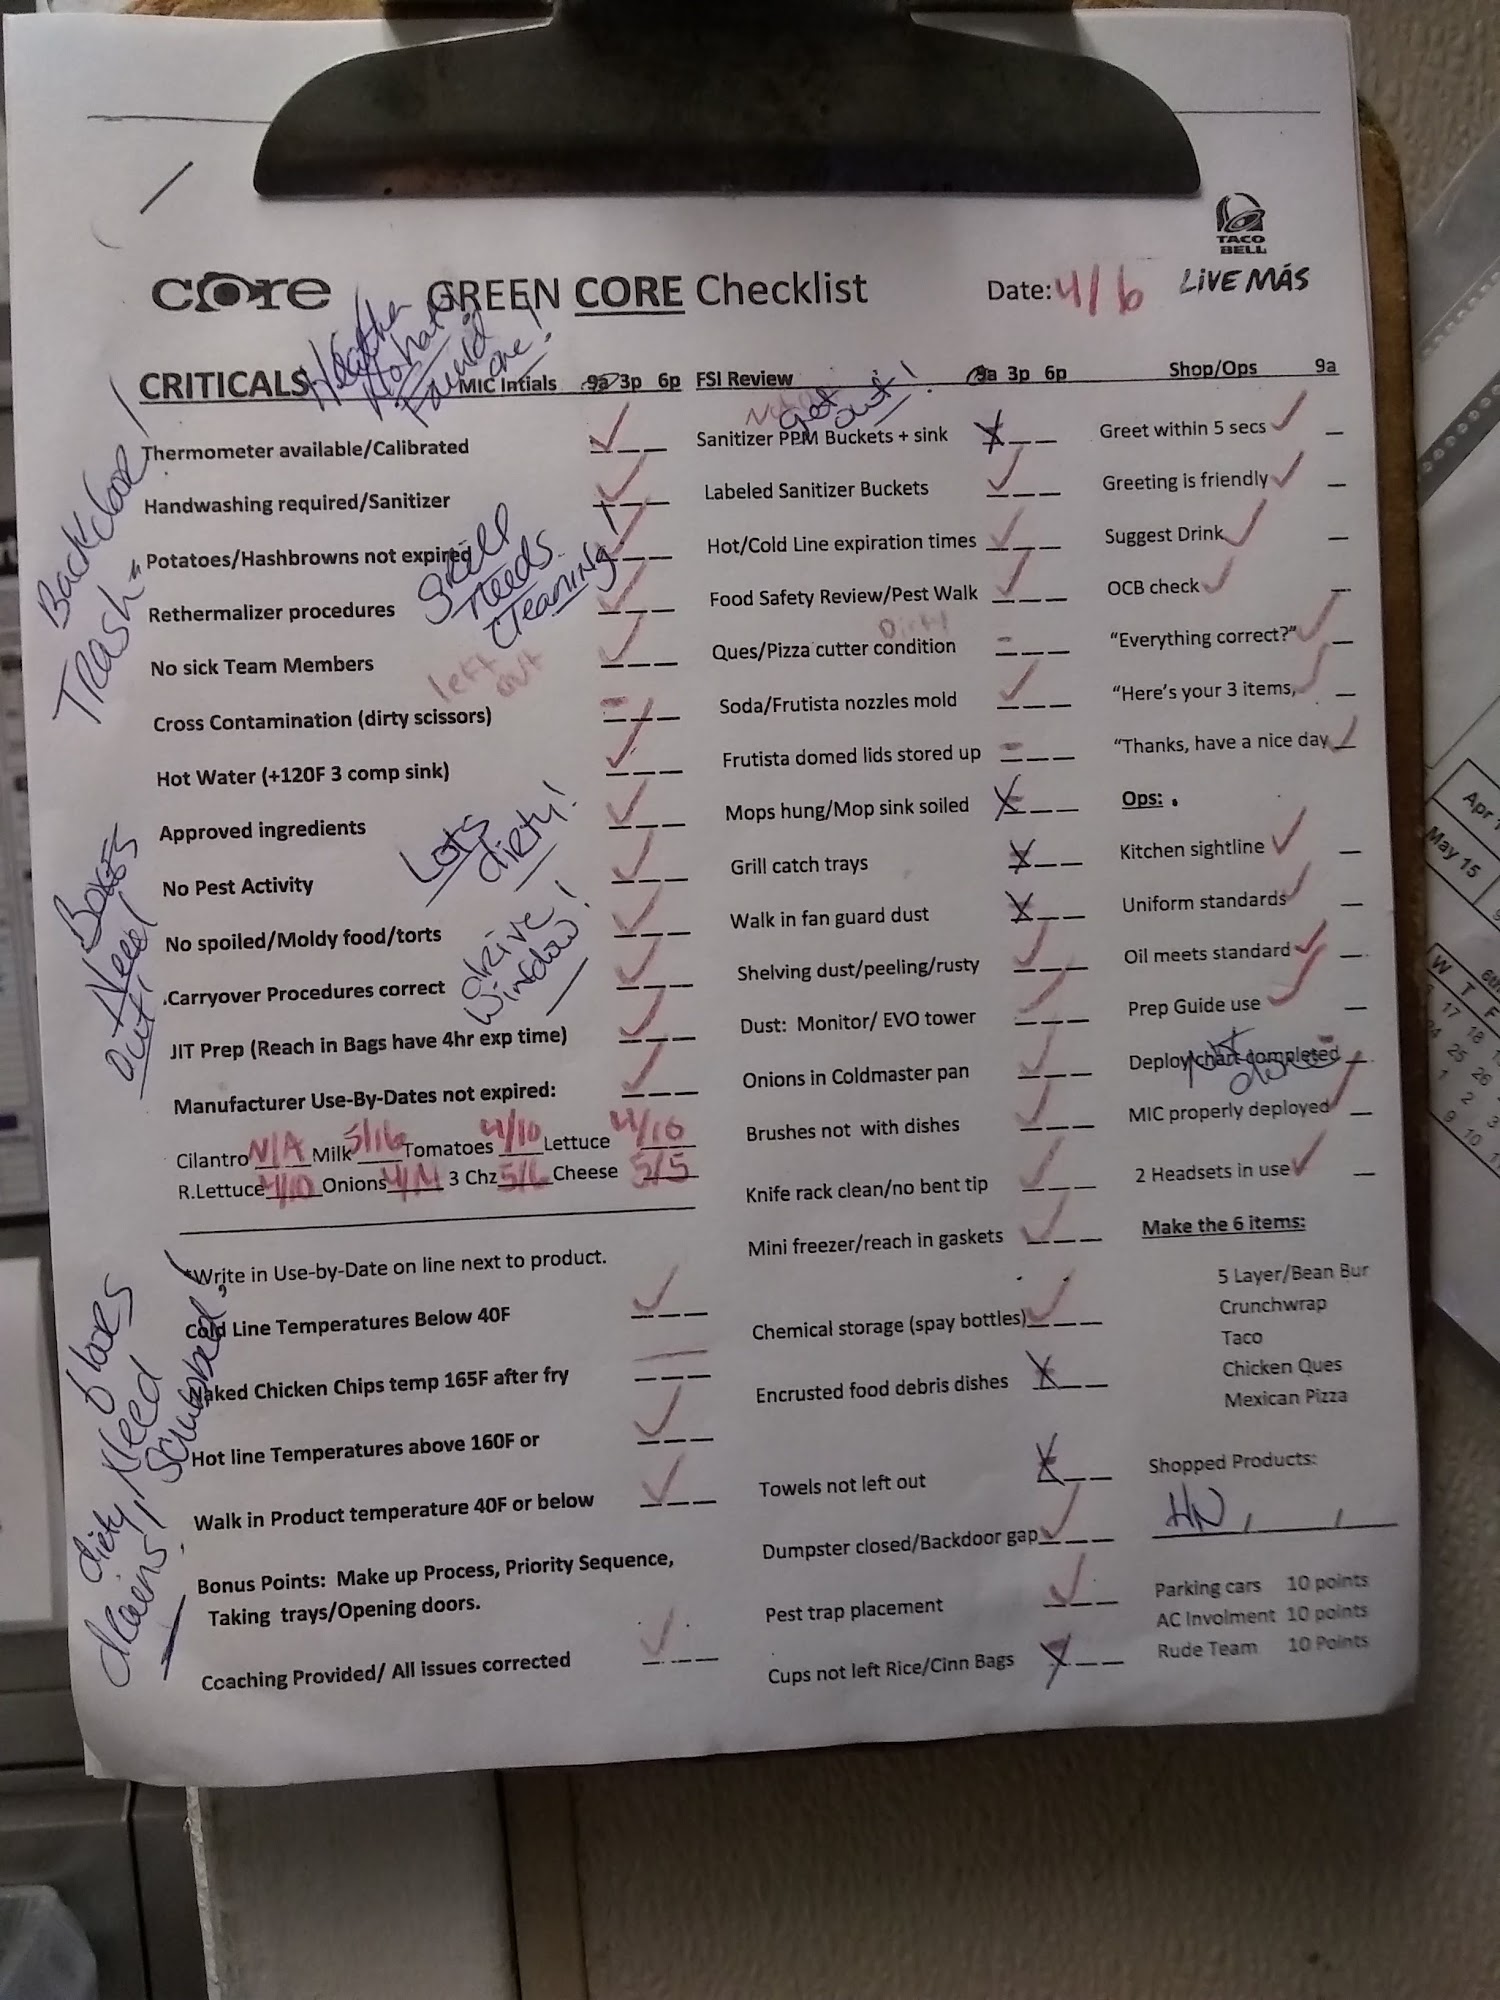 TACO
BELL
core GREEN CORE Checklist Date: 4/6 LIVE MÁS
CRITICALS MIC Intials 9a 3p 6p
Thermometer available/Calibrated
Handwashing required/Sanitizer
Potatoes/Hashbrowns not expired
Rethermalizer procedures
No sick Team Members
left
out
Cross Contamination (dirty scissors)
Hot Water (+120F 3 comp sink)
Approved ingredients
No Pest Activity
No spoiled/Moldy food/torts
Carryover Procedures correct
JIT Prep (Reach in Bags have 4hr exp time)
Manufacturer Use-By-Dates not expired:
Cilantro N/A Milk 5/16 Tomatoes 4/10 Lettuce 4/16
R.Lettuce 4/10 Onions 3 Chz 5/6 Cheese 5/5
*Write in Use-by-Date on line next to product.
Cold Line Temperatures Below 40F
Naked Chicken Chips temp 165F after fry
Hot line Temperatures above 160F or
Walk in Product temperature 40F or below
Bonus Points: Make up Process, Priority Sequence,
Taking trays/Opening doors.
Coaching Provided/ All issues corrected
FSI Review 9a 3p 6p
get
out!
Sanitizer PPM Buckets + sink
Labeled Sanitizer Buckets
Hot/Cold Line expiration times
Food Safety Review/Pest Walk
Dirty
Ques/Pizza cutter condition
Soda/Frutista nozzles mold
Frutista domed lids stored up
Mops hung/Mop sink soiled
Grill catch trays
Walk in fan guard dust
Shelving dust/peeling/rusty
Dust: Monitor/ EVO tower
Onions in Coldmaster pan
Brushes not with dishes
Knife rack clean/no bent tip
Mini freezer/reach in gaskets
Chemical storage (spay bottles)
Encrusted food debris dishes
Towels not left out
Dumpster closed/Backdoor gap
Pest trap placement
Cups not left Rice/Cinn Bags
Shop/Ops 9a
Greet within 5 secs
Greeting is friendly
Suggest Drink
OCB check
“Everything correct?”
“Here’s your 3 items,
“Thanks, have a nice day
Ops:
Kitchen sightline
Uniform standards
Oil meets standard
Prep Guide use
Deploy chart completed
not
MIC properly deployed
2 Headsets in use
Make the 6 items:
5 Layer/Bean Bur
Crunchwrap
Taco
Chicken Ques
Mexican Pizza
Shopped Products:
HN, ,
Parking cars 10 points
AC Involment 10 points
Rude Team 10 Points
Heather
Found
one!
Grill
needs
cleaning!
Lots
dirty!
drive
window!
Backdoor!
Trash
Boxes
Need
out!
floors
dirty, Need
drains, Scrubbed,
Apr
May 15
W T F
17 18
24 25 26
1 2 3
9 10